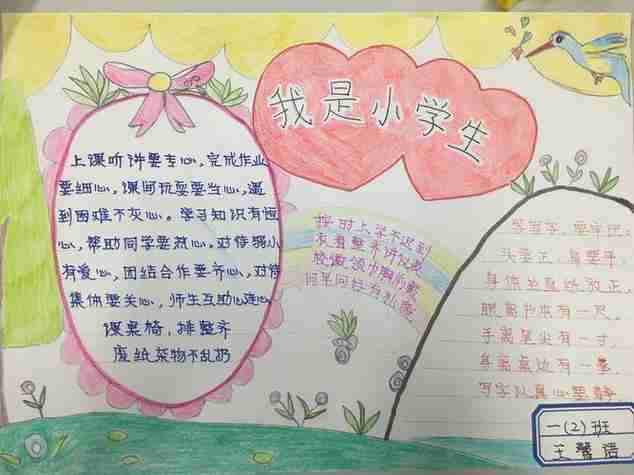 我是小学生
上课听讲要专心,完成作业
要细心,课间玩耍要当心,遇
到困难不灰心。学习知识有恒
心,帮助同学要热心,对待弱小
有爱心,团结合作要齐心,对待
集体要关心,师生互助心连心
课桌椅,排整齐
废纸杂物不乱扔
按时上学不迟到
衣着整齐讲仪表
校徽领巾胸前戴
问早问好有礼貌
写字,要牢记
头要正,肩要平
身体坐直姿放正
眼离书本有一尺
手离笔尖有一寸
身离桌边有一拳
写字认真心要静
一(2)班
王